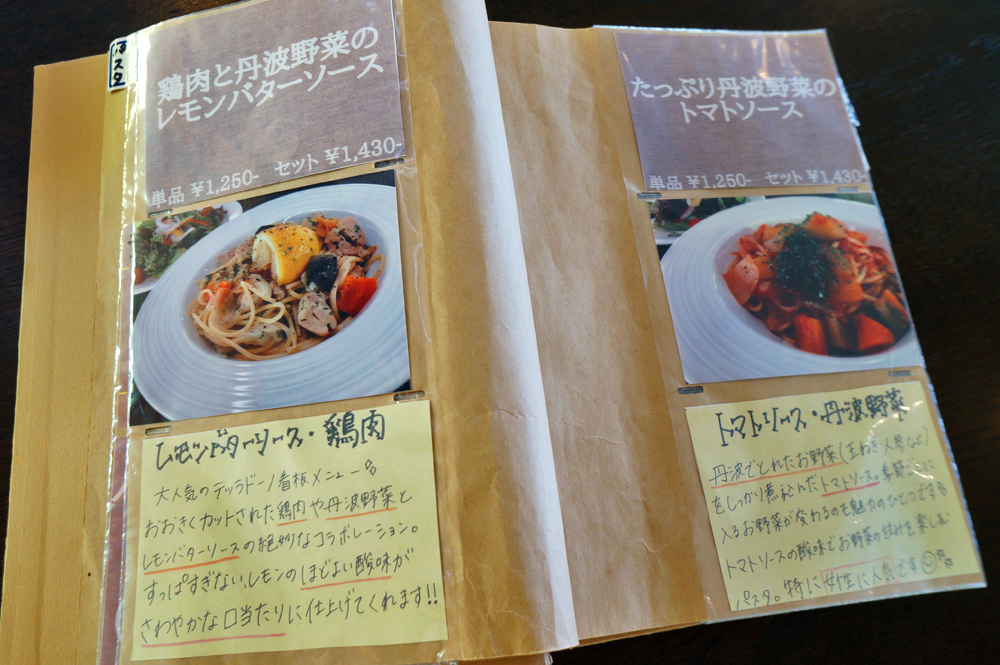 パスタ
鶏肉と丹波野菜の
レモンバターソース
単品 ¥1,250- セット ¥1,430-
レモンバターソース・鶏肉
大人気のテッラドーノ看板メニュー
おおきくカットされた鶏肉や丹波野菜と
レモンバターソースの絶妙なコラボレーション。
すっぱすぎないレモンのほどよい酸味が
さわやかな口当たりに仕上げてくれます!!
たっぷり丹波野菜の
トマトソース
単品 ¥1,250- セット ¥1,430-
トマトソース・丹波野菜
丹波でとれたお野菜(玉ねぎ 人参 など)
をしっかり煮込んだトマトソース。季節ごとに
入るお野菜が変わるのも魅力のひとつです
トマトソースの酸味でお野菜の甘みを楽しむ
パスタ。特に女性に人気です